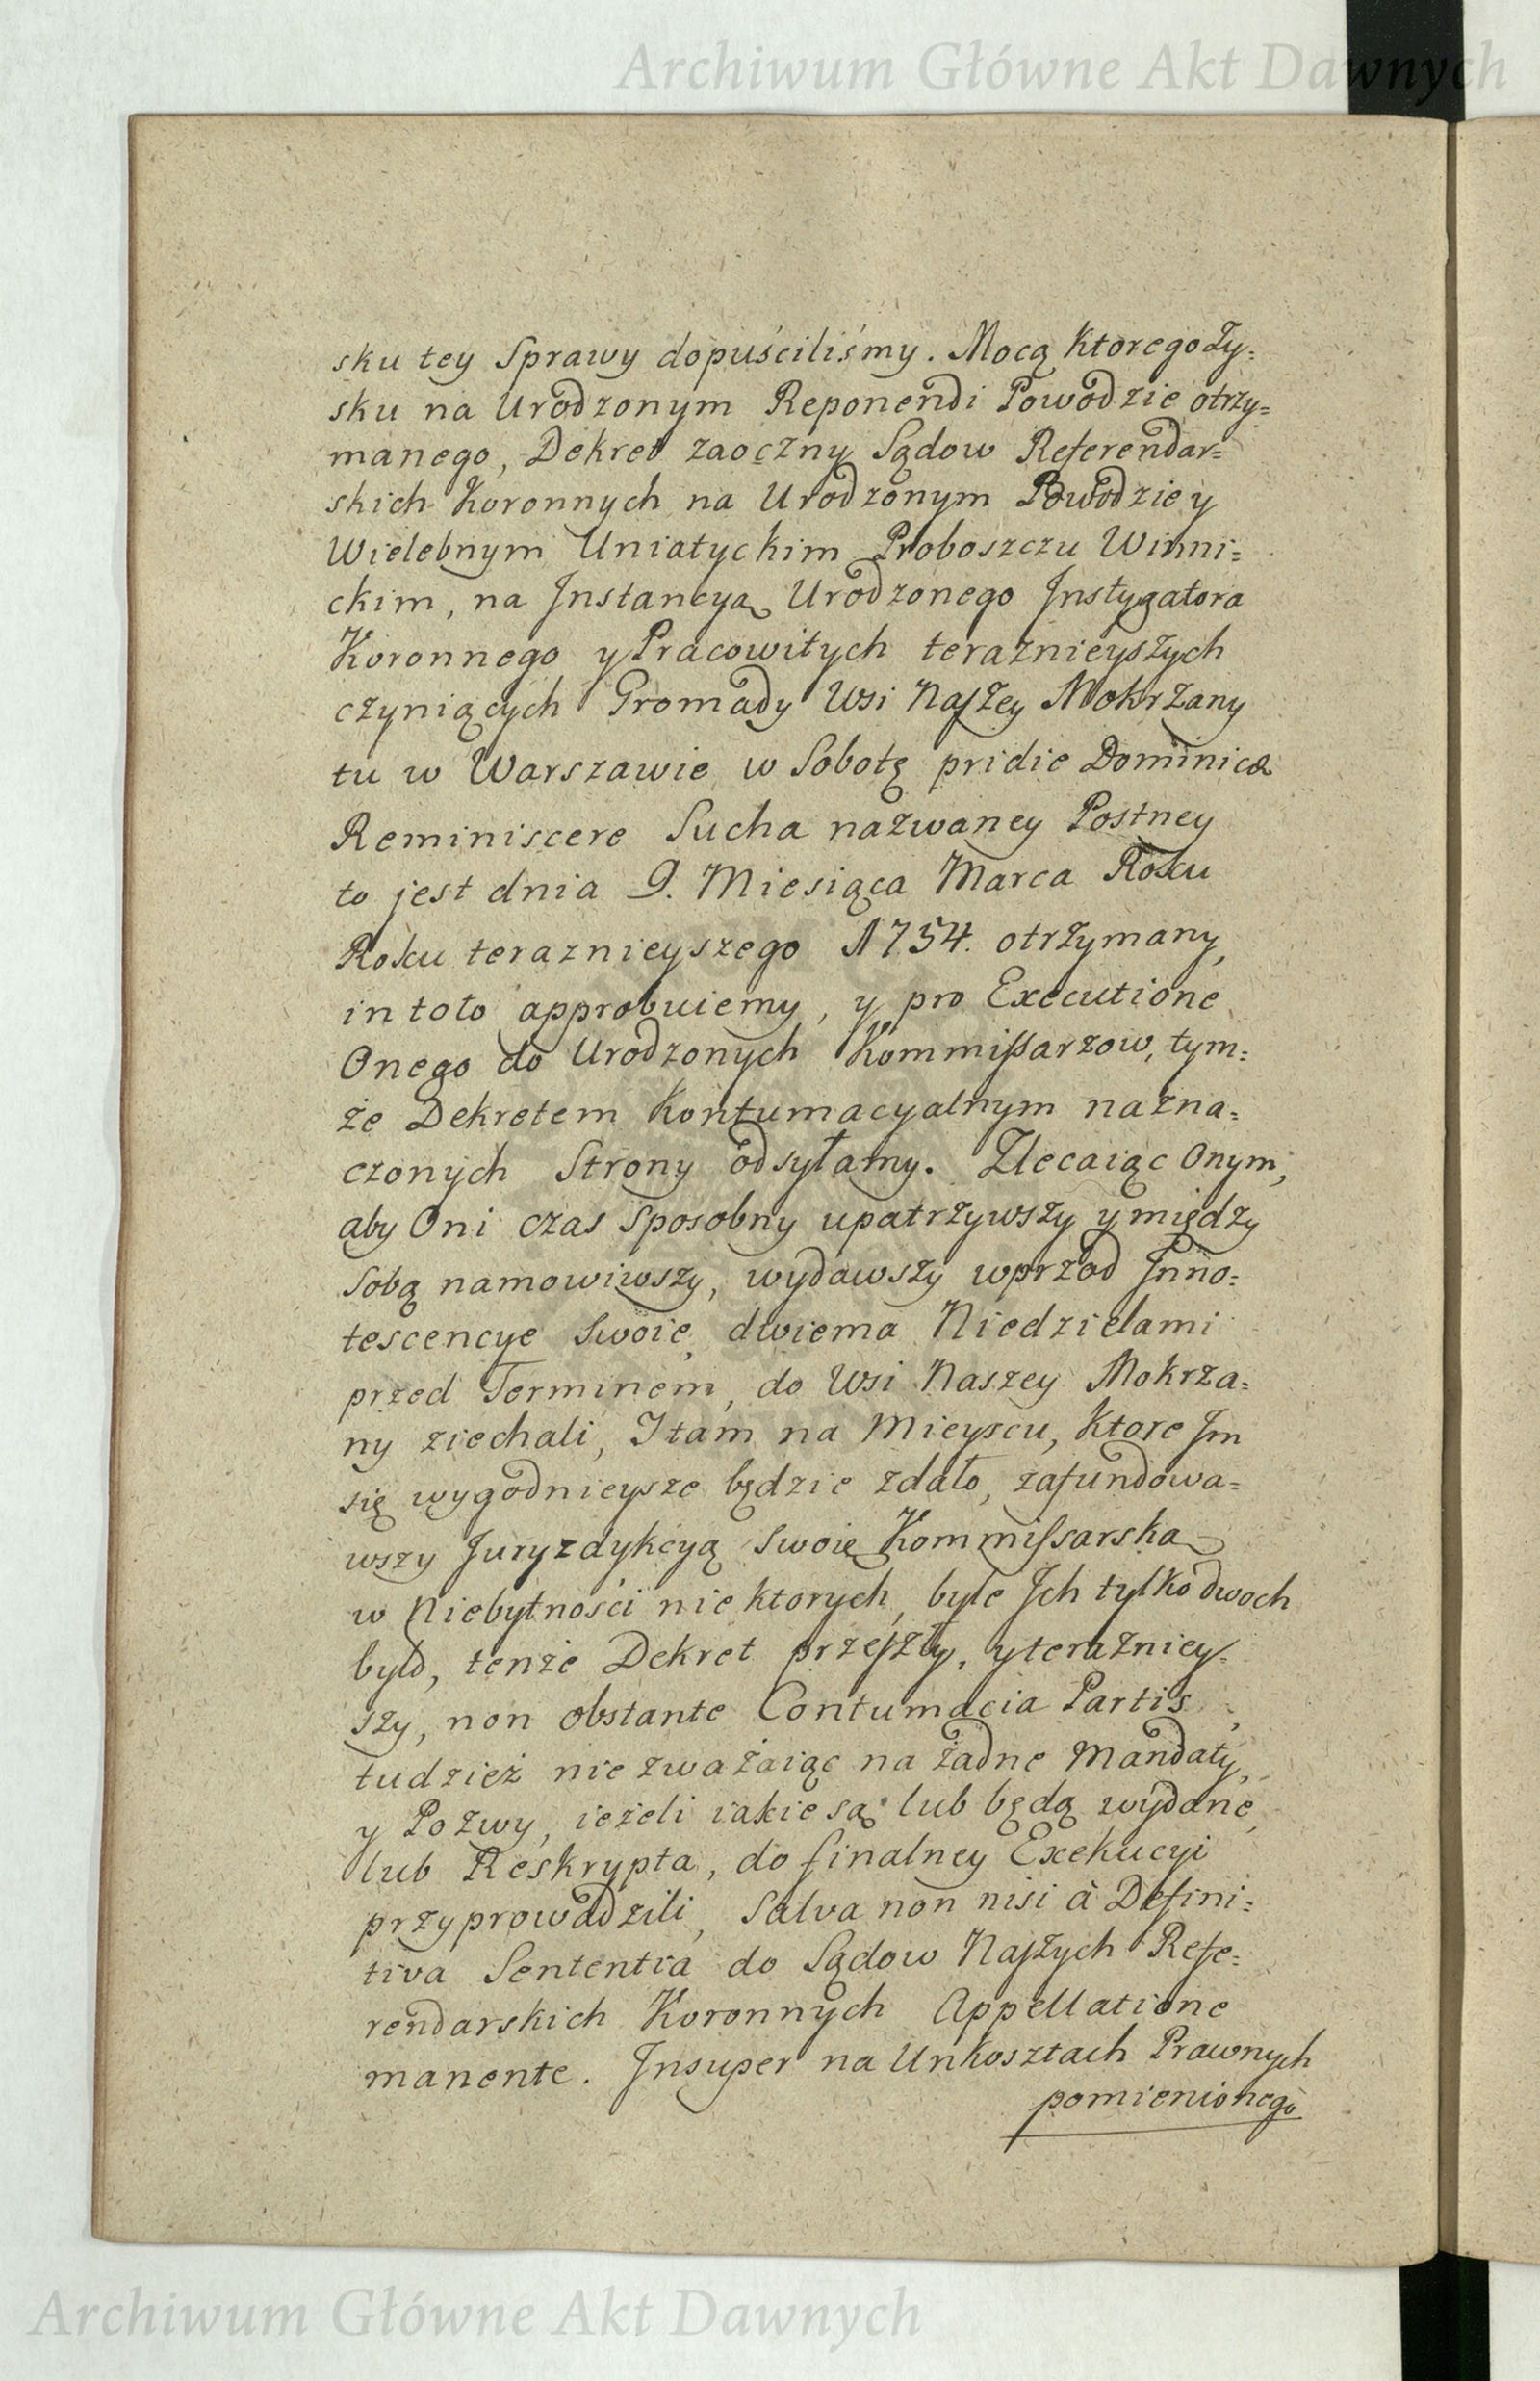 Archiwum Główne Akt Dawnych
sku tey Sprawy dopuściliśmy. Mocą ktorego Zy=
sku na Urodzonym Reponendi Powodzie otrzy=
manego, Dekret zaoczny Sądow Referendar=
skich Koronnych na Urodzonym Powodzie y
Wielebnym Uniatyckim Proboszczu Winni=
ckim, na Jnstancyą Urodzonego Jnstygatora
Koronnego y Pracowitych teraznieyszych
czyniących Gromady Wsi Naszey Mokrzany
tu w Warszawie w Sobotę pridie Dominicæ
Reminiscere Sucha nazwaney Postney
to jest dnia 9. Miesiąca Marca Roku
Roku teraznieyszego 1754. otrzymany,
in toto approbuiemy, y pro Executione
Onego do Urodzonych Kommissarzow, tym=
że Dekretem Kontumacyalnym nazna=
czonych Strony odsyłamy. Zlecaiąc Onym,
aby Oni czas sposobny upatrzywszy y między
Sobą namowiwszy, wydawszy wprzod Jnno=
tescencye Swoie, dwiema Niedzielami
przed Terminem, do Wsi Naszey Mokrza=
ny ziechali, J tam na Mieyscu, ktore Jm
się wygodnieysze będzie zdało, zafundowa=
wszy Juryzdykcyą Swoię Kommissarska
w Niebytności nie ktorych, byle Jch tylko dwoch
było, tenże Dekret przeszły, y teraźniey=
szy, non obstante Contumacia Partis,
tudzież nie zważaiąc na żadne Mandaty,
y Pozwy, ieżeli iakie są lub będą wydane,
lub Reskrypta, do finalney Exekucyi
przyprowadzili, Salva non nisi à Defini=
tiva Sententia do Sądow Naszych Refe=
rendarskich Koronnych Appellatione
manente. Jnsuper na Unkosztach Prawnych
pomienionego
Archiwum Główne Akt Dawnych